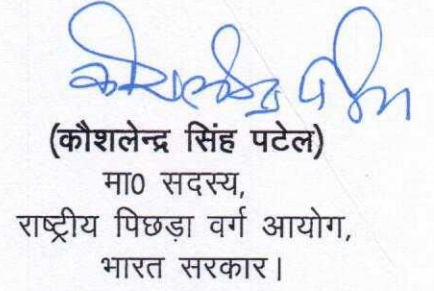 (कौशलेन्द्र सिंह पटेल)
मा0 सदस्य,
राष्ट्रीय पिछड़ा वर्ग आयोग,
भारत सरकार।